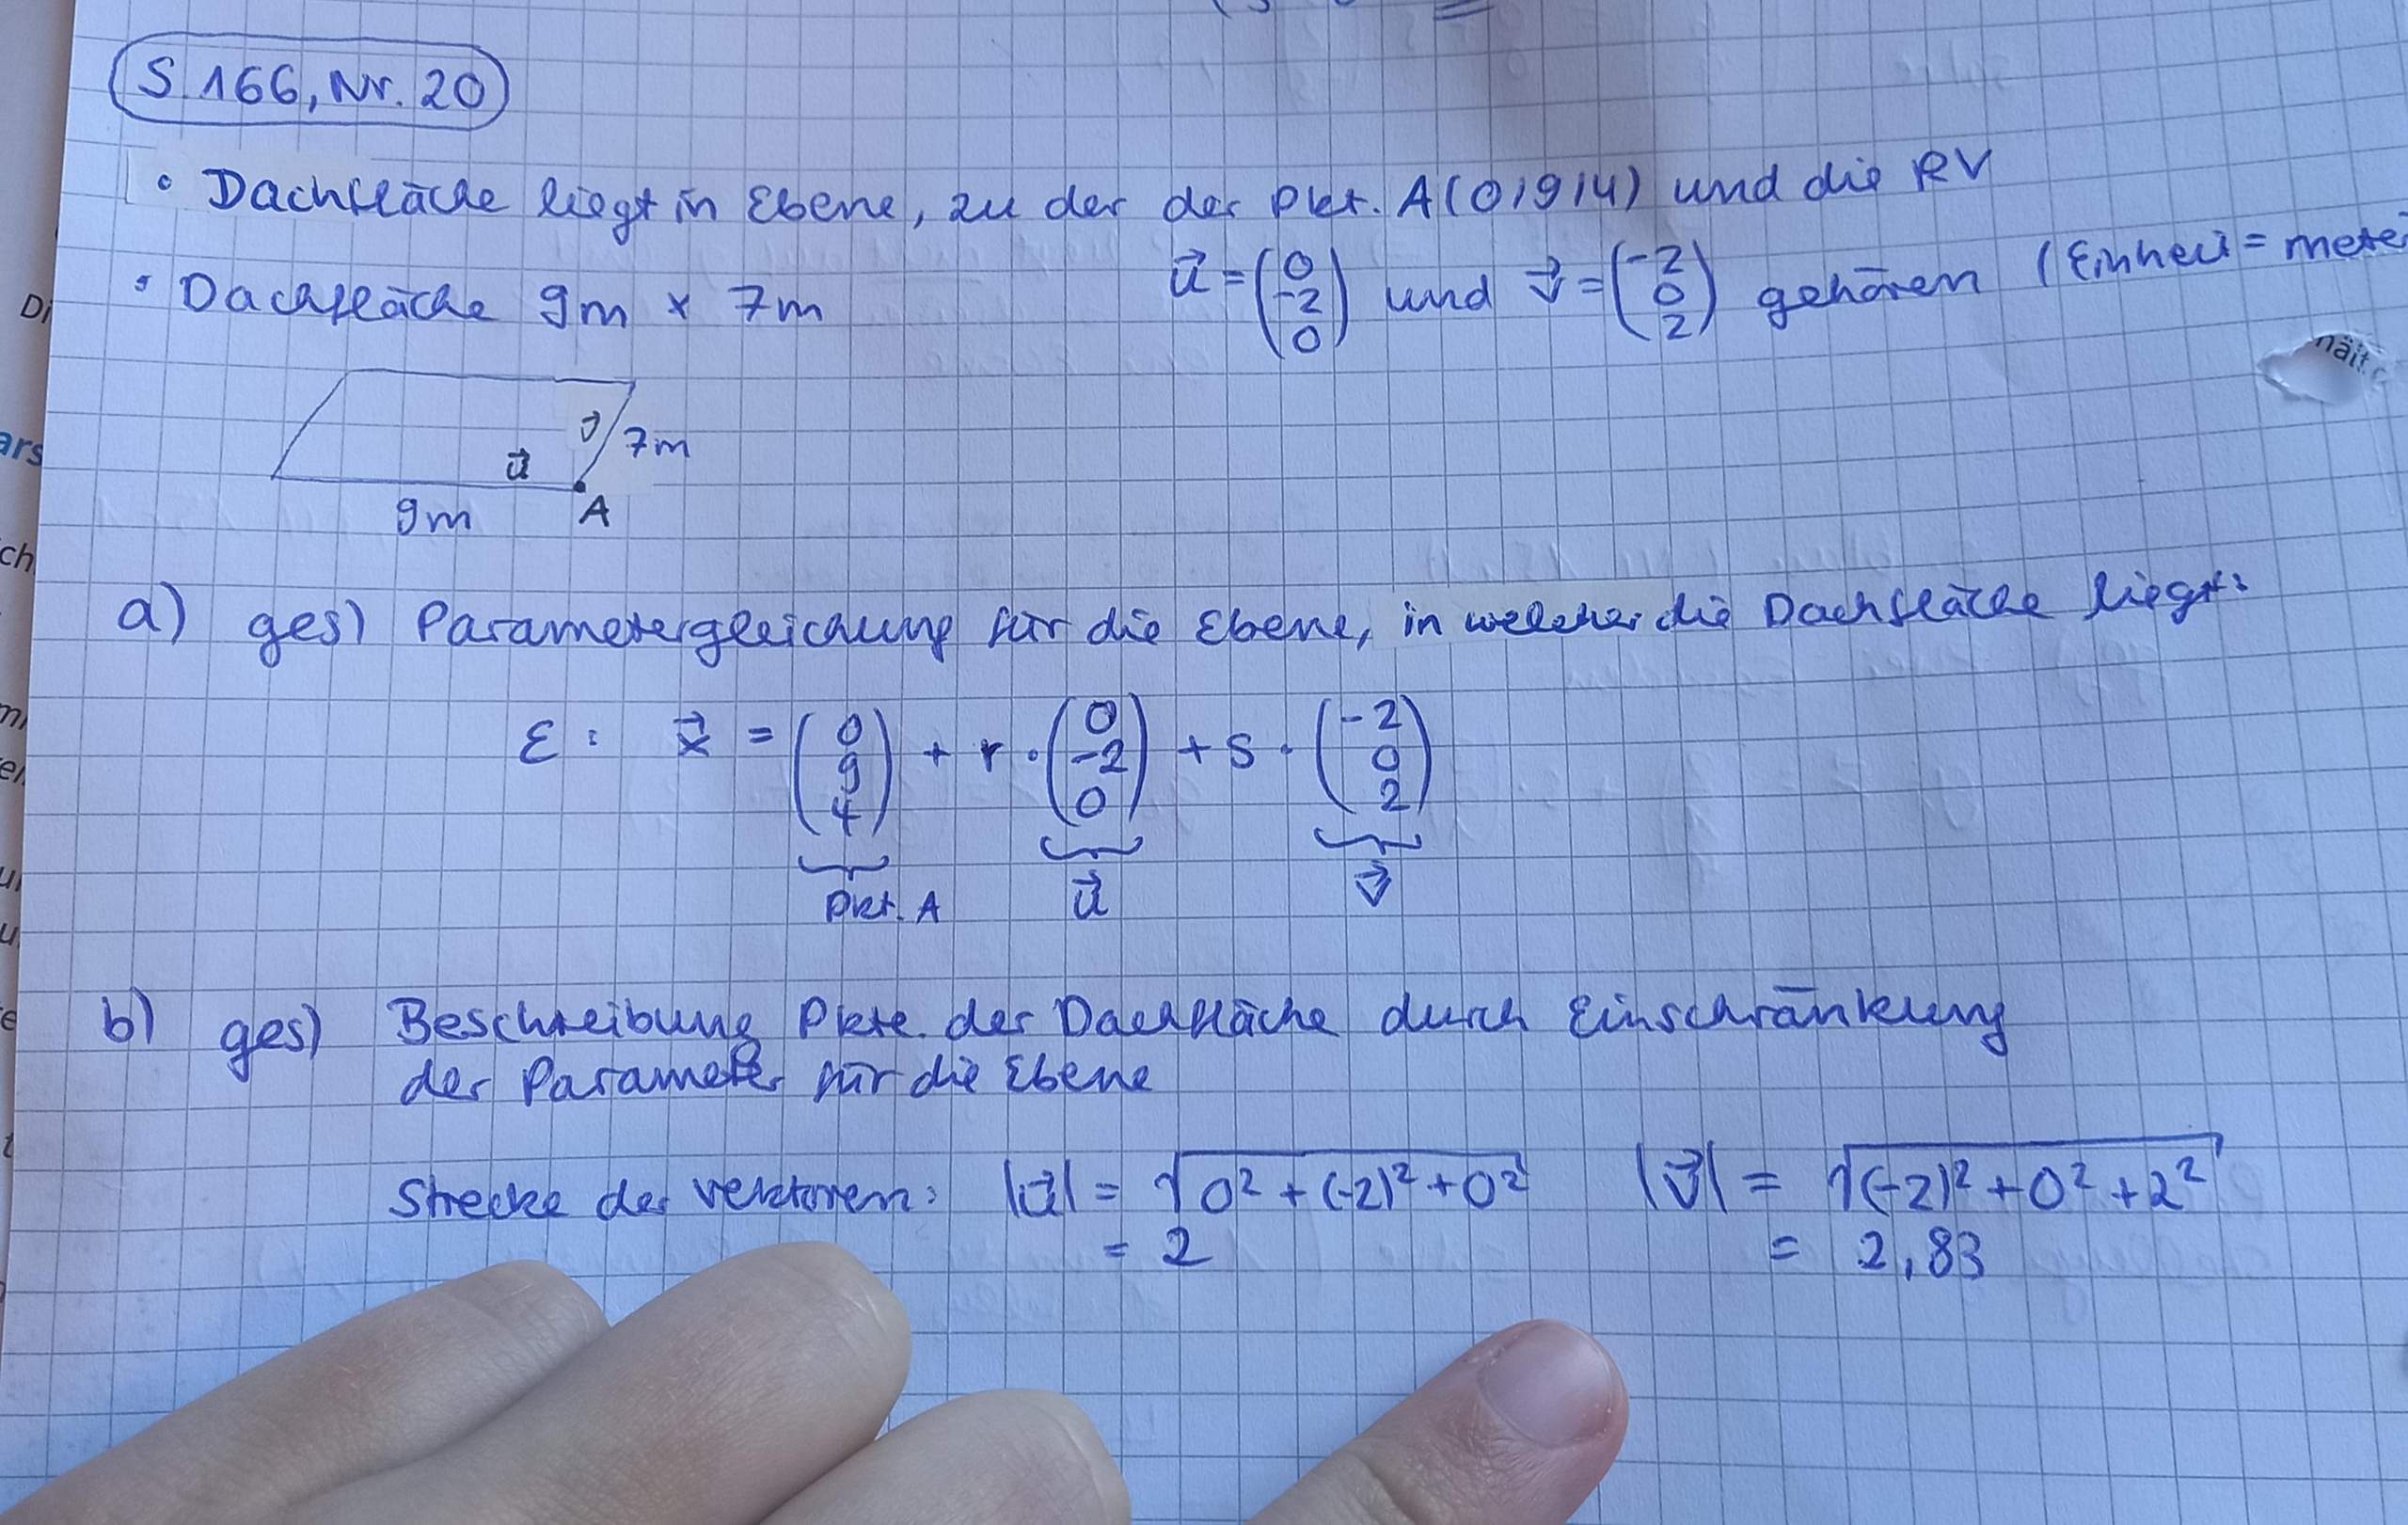 S. 166, Nr. 20
• Dachfläche liegt in Ebene, zu der der Pkt. A(0|9|4) und die RV
u⃗ = (0 -2 0) und v⃗ = (-2 0 2) gehören (Einheit = mete
• Dachfläche 9m x 7m
v⃗ 7m
u⃗
9m A
a) ges) Parametergleichung für die Ebene, in welcher die Dachfläche liegt:
E: x⃗ = (0 9 4) + r · (0 -2 0) + s · (-2 0 2)
Pkt. A u⃗ v⃗
b) ges) Beschreibung Pkte. der Dachfläche durch Einschränkung
der Parameter für die Ebene
Strecke der Vektoren: |u⃗| = √0² + (-2)² + 0² |v⃗| = √(-2)² + 0² + 2²
= 2 = 2,83